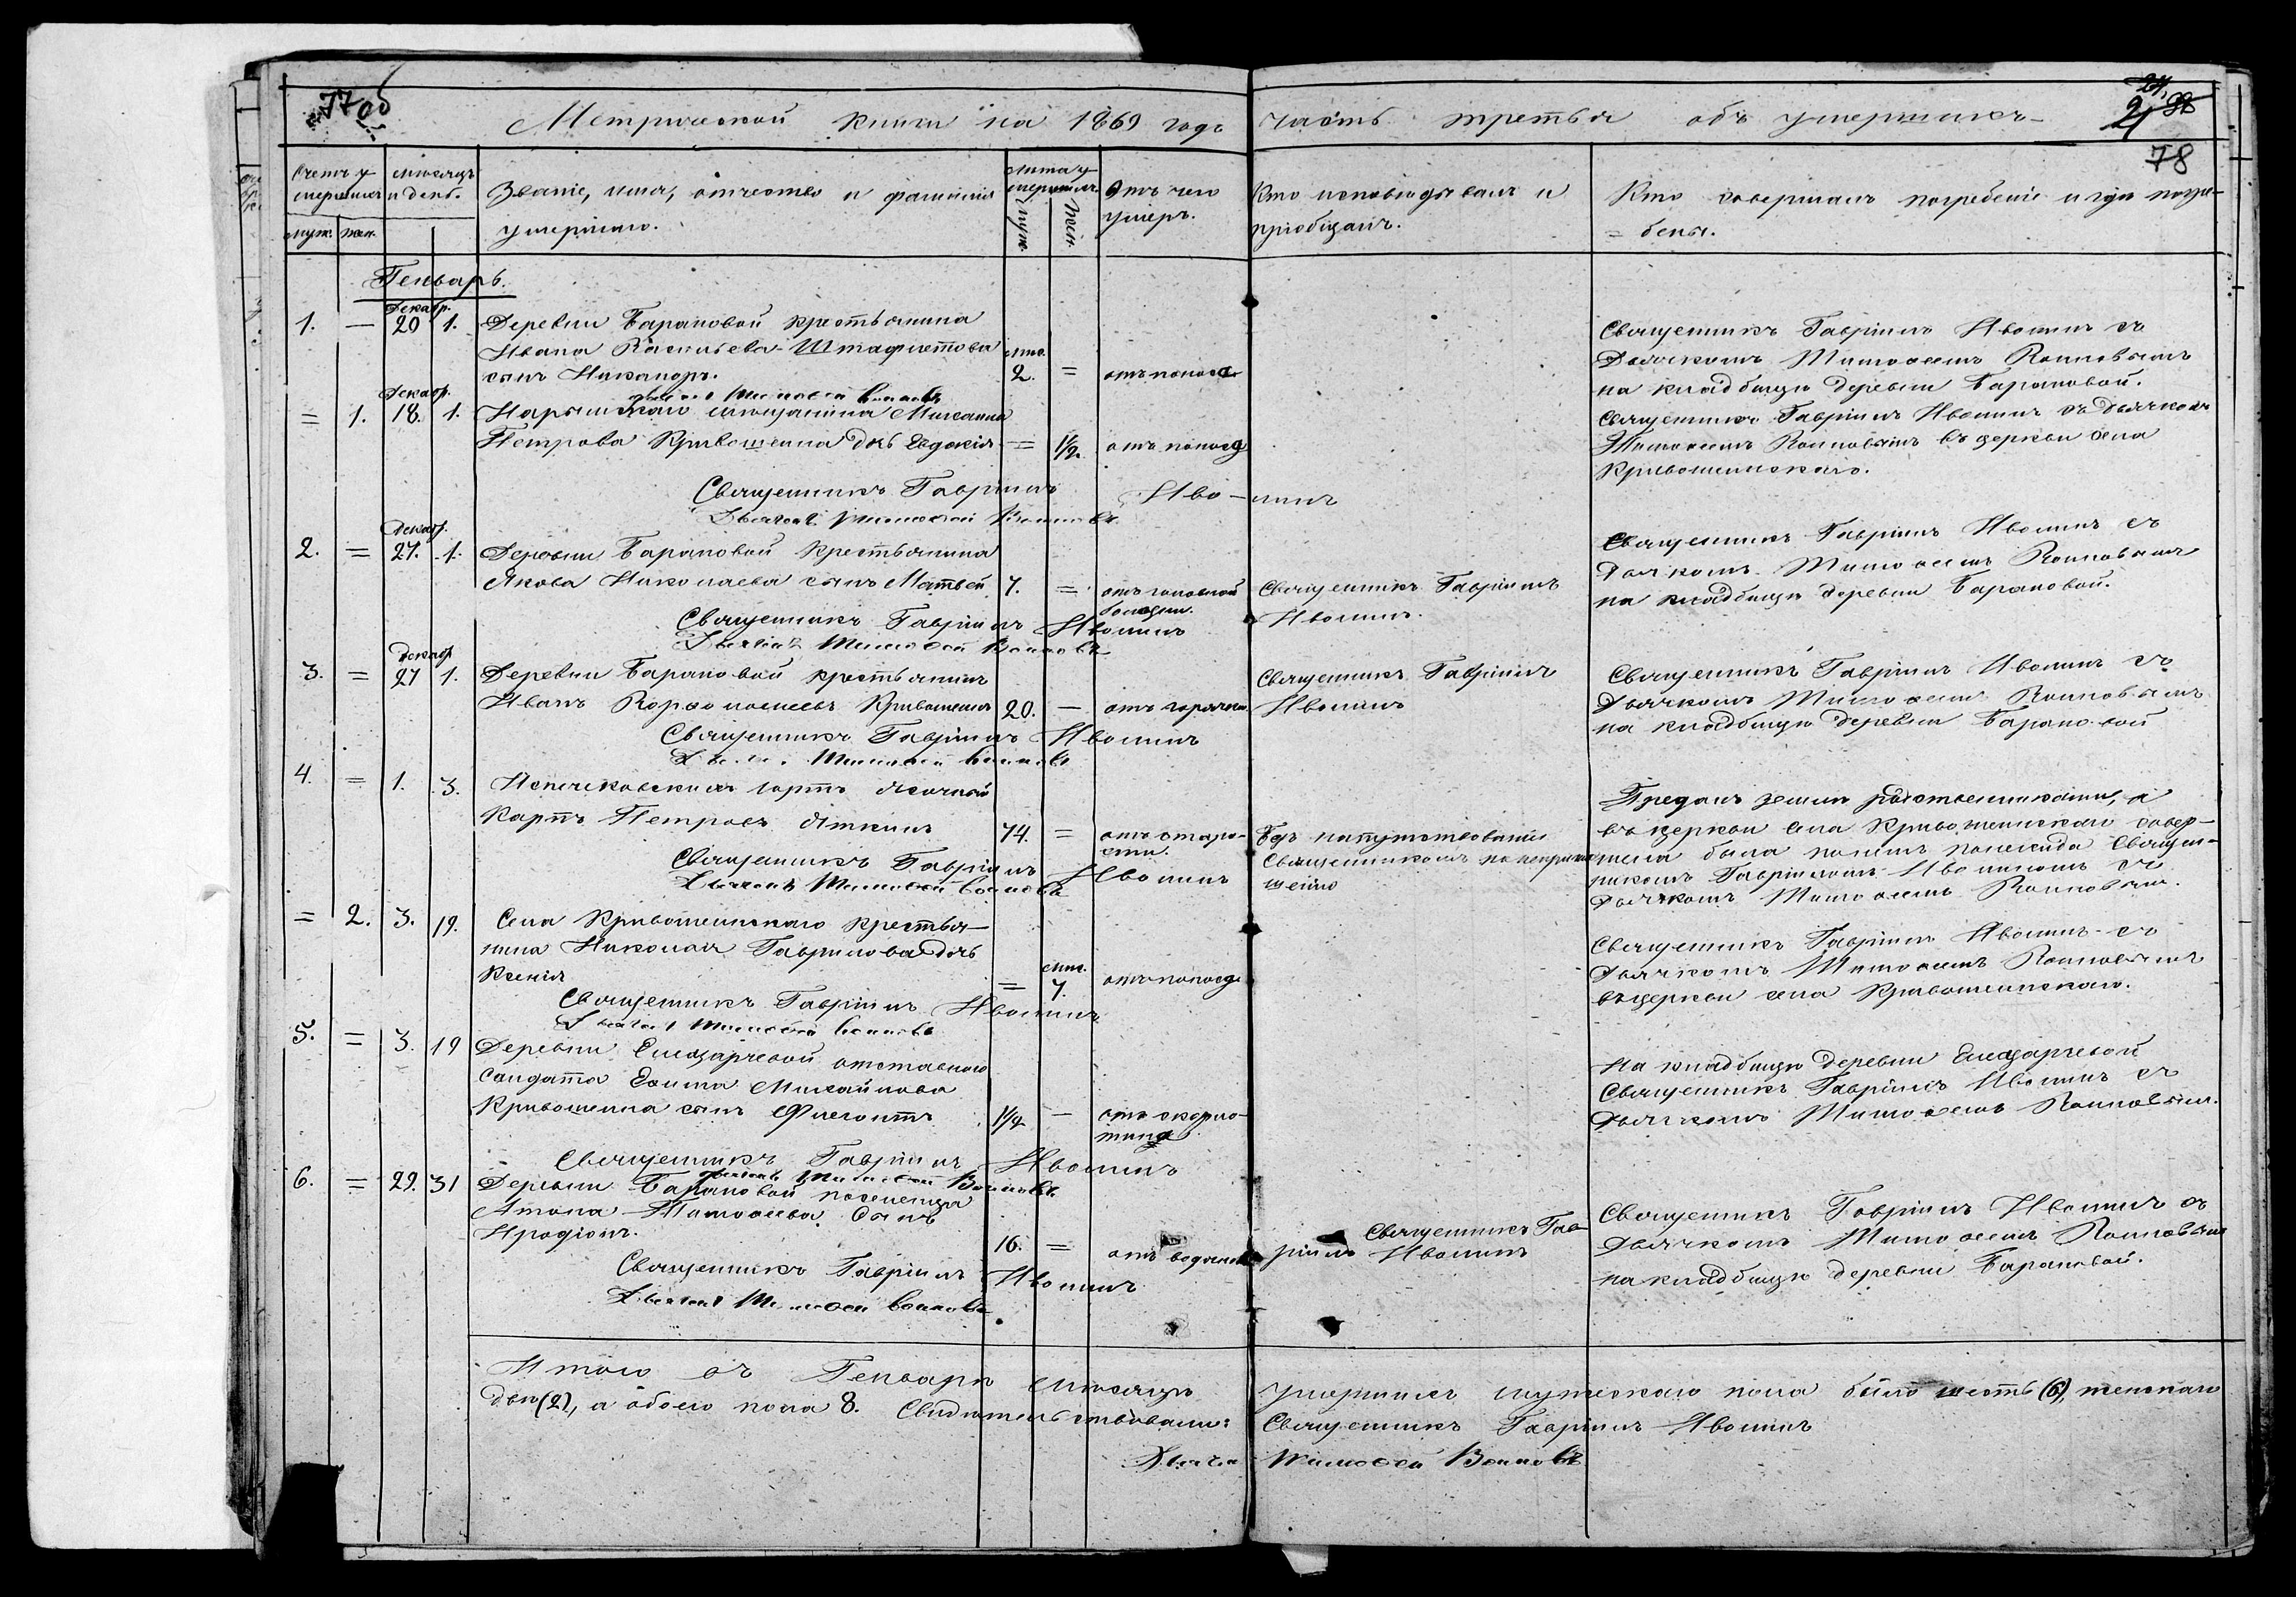 77 об
Метрической книги на 1869 годъ часть третья объ умершихъ
24.
21 98
78
Счетъ умершихъ
муж. жен.
мѣсяцъ и день.
Званіе, имя, отчество и фамилія умершаго.
лѣта умершихъ.
муж. жен.
Отъ чего умеръ.
Кто исповѣдывалъ и пріобщалъ.
Кто совершалъ погребеніе и гдѣ погребены.
Генварь.
Декабр.
1. — 20 1. Деревни Барановой крестьянина
Ивана Васильева Штафиетова
сынъ Никаноръ. 2. = отъ поноса
Священникъ Гавріилъ Ивонинъ съ
Дьячкомъ Тимоѳеемъ Воиновымъ
на кладбищѣ деревни Барановой.
Декабр.
= 1. 18. 1. Нарымскаго мѣщанина Михаила
Петрова Кривошеина дчь Евдокія = 1/2. отъ поноса
Священникъ Гавріилъ Ивонинъ съ дьячкомъ
Тимоѳеемъ Воиновымъ въ церкви села
Кривошеинскаго.
Священникъ Гавріилъ Ивонинъ
Дьячекъ Тимоѳей Воиновъ
Декабр.
2. = 27. 1. Деревни Барановой крестьянина
Якова Николаева сынъ Матвей. 7. = отъ головной болезни.
Священникъ Гавріилъ
Ивонинъ.
Священникъ Гавріилъ Ивонинъ съ
Дьячкомъ Тимоѳеемъ Воиновымъ
на кладбищѣ деревни Барановой.
Священникъ Гавріилъ Ивонинъ
Дьячекъ Тимоѳей Воиновъ
Декабр
3. = 27 1. Деревни Барановой крестьянинъ
Иванъ Кривошеинъ 20. — отъ горячки
Священникъ Гавріилъ
Ивонинъ
Священникъ Гавріилъ Ивонинъ съ
Дьячкомъ Тимоѳеемъ Воиновымъ
на кладбищѣ деревни Барановой
Священникъ Гавріилъ Ивонинъ
Дьячекъ Тимоѳей Воиновъ
4. = 1. 3. юртъ ясачный
Карпъ Петровъ 74. = отъ старости.
Безъ напутствованія
Священникомъ по
Преданъ земли родственниками, а
въ церкви села Кривошеинскаго совер-
шена была панихида Священ-
никомъ Гавріиломъ Ивонинымъ съ
Дьячкомъ Тимоѳеемъ Воиновымъ.
Священникъ Гавріилъ Ивонинъ
Дьячекъ Тимоѳей Воиновъ
= 2. 3. 19. Села Кривошеинскаго крестья-
нина Николая Гаврилова дочь
Ксенія = 7. отъ поноса
Священникъ Гавріилъ Ивонинъ съ
Дьячкомъ Тимоѳеемъ Воиновымъ
въ церкви села Кривошеинскаго.
Священникъ Гавріилъ Ивонинъ
Дьячекъ Тимоѳей Воиновъ
5. = 3. 19 Деревни Елизарьевой отставного
Солдата Михайлова
Кривошеина сынъ Флегонтъ 1/4 — отъ скорлатины
На кладбищѣ деревни Елизарьевой
Священникъ Гавріилъ Ивонинъ съ
Дьячкомъ Тимоѳеемъ Воиновымъ.
Священникъ Гавріилъ Ивонинъ
Дьячекъ Тимоѳей Воиновъ
6. = 29. 31 Деревни Барановой поселенца
Антона Тимоѳеева сынъ
Иродіонъ. 16. = отъ водяной
Священникъ Гав-
ріилъ Ивонинъ
Священникъ Гавріилъ Ивонинъ съ
Дьячкомъ Тимоѳеемъ Воиновымъ
на кладбищѣ деревни Барановой.
Священникъ Гавріилъ Ивонинъ
Дьячекъ Тимоѳей Воиновъ
Итого въ Генварѣ мѣсяцѣ умершихъ мужескаго пола было шесть (6), женскаго
двѣ (2), а обоего пола 8. Свидѣтельствовали: Священникъ Гавріилъ Ивонинъ
Дьячекъ Тимоѳей Воиновъ